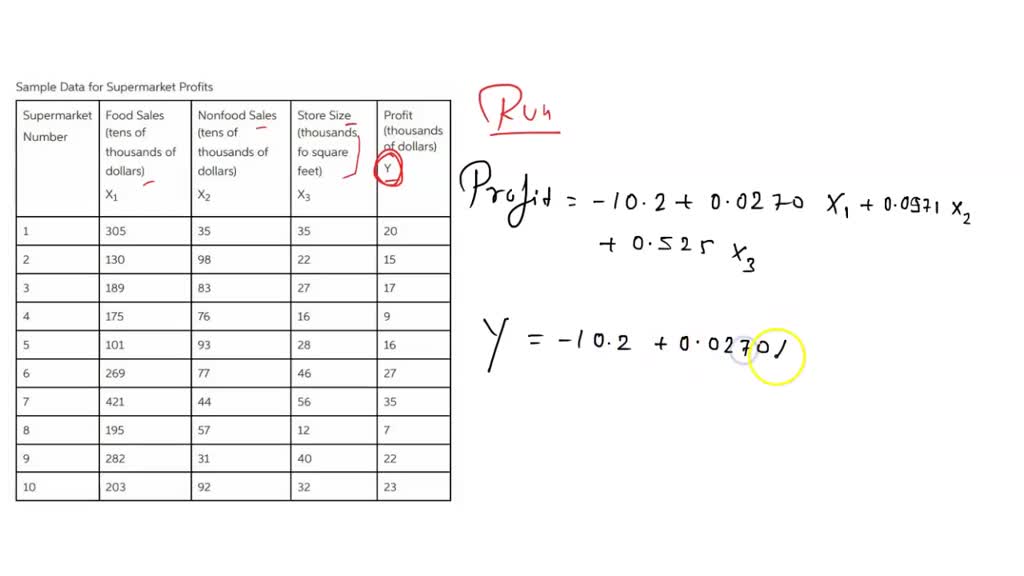 Sample Data for Supermarket Profits
Supermarket Number
Food Sales (tens of thousands of dollars) X1
Nonfood Sales (tens of thousands of dollars) X2
Store Size (thousands fo square feet) X3
Profit (thousands of dollars) Y
1 305 35 35 20
2 130 98 22 15
3 189 83 27 17
4 175 76 16 9
5 101 93 28 16
6 269 77 46 27
7 421 44 56 35
8 195 57 12 7
9 282 31 40 22
10 203 92 32 23
Run
Profit = -10.2 + 0.0270 X1 + 0.0971 X2
+ 0.525 X3
Y = -10.2 + 0.0270